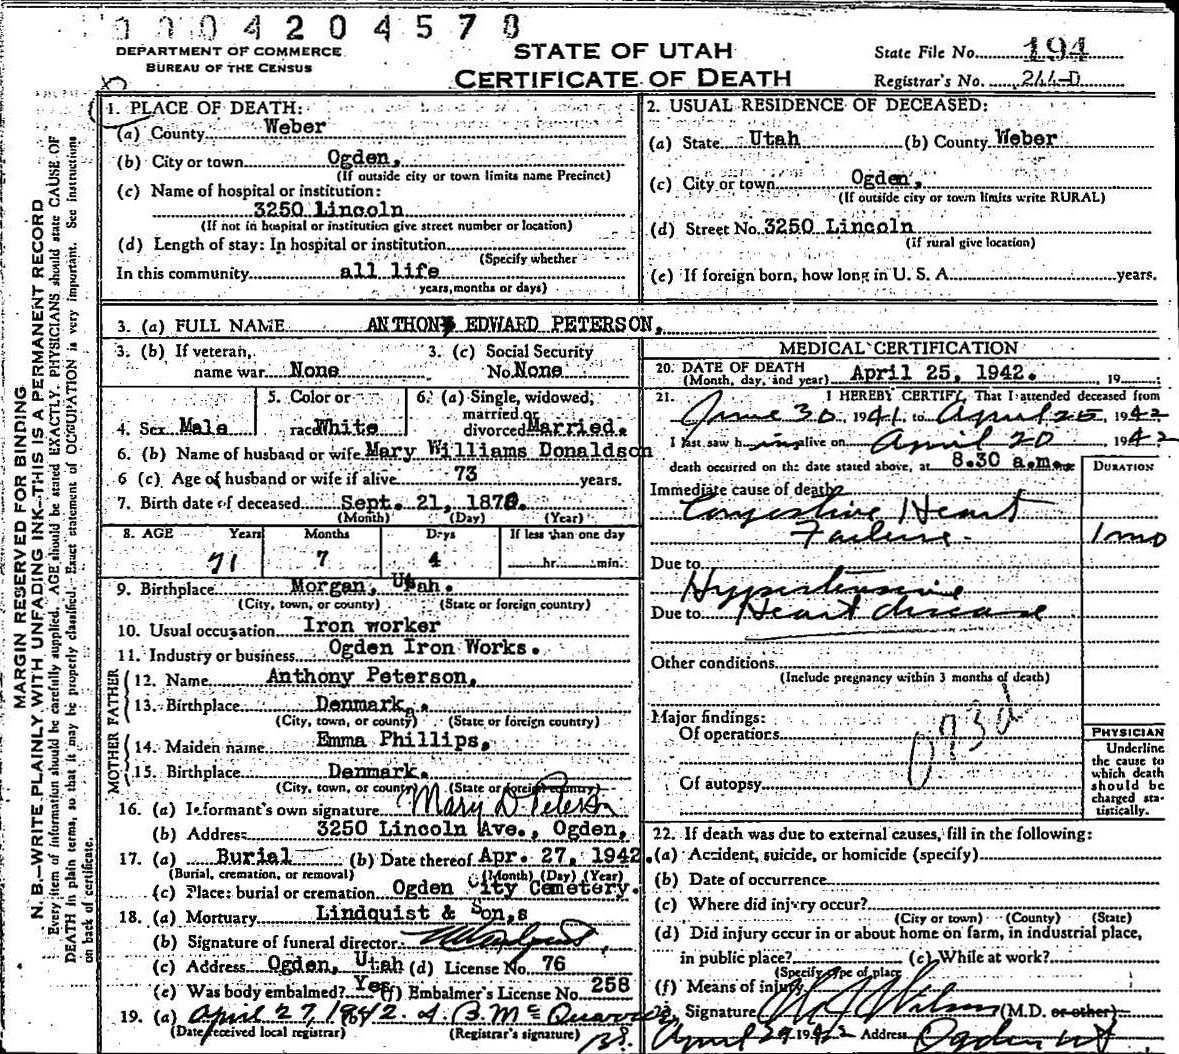 0004204578
DEPARTMENT OF COMMERCE
BUREAU OF THE CENSUS
STATE OF UTAH
CERTIFICATE OF DEATH
State File No. 194
Registrar's No. 244-D
MARGIN RESERVED FOR BINDING
N. B.—WRITE PLAINLY WITH UNFADING INK—THIS IS A PERMANENT RECORD
Every item of information should be carefully supplied. AGE should be stated EXACTLY. PHYSICIANS should state CAUSE OF
DEATH in plain terms, so that it may be properly classified. Exact statement of OCCUPATION is very important. See instructions
on back of certificate.
1. PLACE OF DEATH:
(a) County Weber
(b) City or town Ogden,
(If outside city or town limits name Precinct)
(c) Name of hospital or institution:
3250 Lincoln
(If not in hospital or institution give street number or location)
(d) Length of stay: In hospital or institution
(Specify whether
In this community all life
years, months or days)
2. USUAL RESIDENCE OF DECEASED:
(a) State Utah (b) County Weber
(c) City or town Ogden,
(If outside city or town limits write RURAL)
(d) Street No. 3250 Lincoln
(If rural give location)
(e) If foreign born, how long in U. S. A. years.
3. (a) FULL NAME ANTHONY EDWARD PETERSON,
3. (b) If veteran, name war None
3. (c) Social Security No. None
4. Sex Male
5. Color or race White
6. (a) Single, widowed, married or divorced Married.
6. (b) Name of husband or wife Mary Williams Donaldson
6 (c) Age of husband or wife if alive 73 years.
7. Birth date of deceased Sept. 21, 1870.
(Month) (Day) (Year)
8. AGE Years Months Days If less than one day
71 7 4 hr. min.
9. Birthplace Morgan, Utah.
(City, town, or county) (State or foreign country)
10. Usual occupation Iron worker
11. Industry or business Ogden Iron Works.
FATHER
12. Name Anthony Peterson,
13. Birthplace Denmark,.
(City, town, or county) (State or foreign country)
MOTHER
14. Maiden name Emma Phillips,
15. Birthplace Denmark.
(City, town, or county) (State or foreign country)
16. (a) Informant's own signature Mary D Peterson
(b) Address 3250 Lincoln Ave., Ogden,
17. (a) Burial (b) Date thereof Apr. 27, 1942.
(Burial, cremation, or removal) (Month) (Day) (Year)
(c) Place: burial or cremation Ogden City Cemetery.
18. (a) Mortuary Lindquist & Son,s
(b) Signature of funeral director
(c) Address Ogden, Utah (d) License No. 76
(e) Was body embalmed? Yes (f) Embalmer's License No. 258
19. (a) April 27 1942.
(Date received local registrar) (Registrar's signature)
MEDICAL CERTIFICATION
20. DATE OF DEATH
(Month, day, and year) April 25, 1942. , 19
21. I HEREBY CERTIFY, That I attended deceased from
June 30, 1941 to April 25, 1942
I last saw him alive on April 20, 1942
death occurred on the date stated above, at 8.30 a.m.
DURATION
Immediate cause of death
Congestive Heart
Failure. 1 mo
Due to
Hypertensive
Due to Heart disease
Other conditions
(Include pregnancy within 3 months of death)
Major findings:
Of operations
093d
Of autopsy
PHYSICIAN
Underline
the cause to
which death
should be
charged sta-
tistically.
22. If death was due to external causes, fill in the following:
(a) Accident, suicide, or homicide (specify)
(b) Date of occurrence
(c) Where did injury occur?
(City or town) (County) (State)
(d) Did injury occur in or about home on farm, in industrial place,
in public place? (e) While at work?
(Specify type of place)
(f) Means of injury
23. Signature (M.D. or other)
April 29 1942 Address Ogden Ut